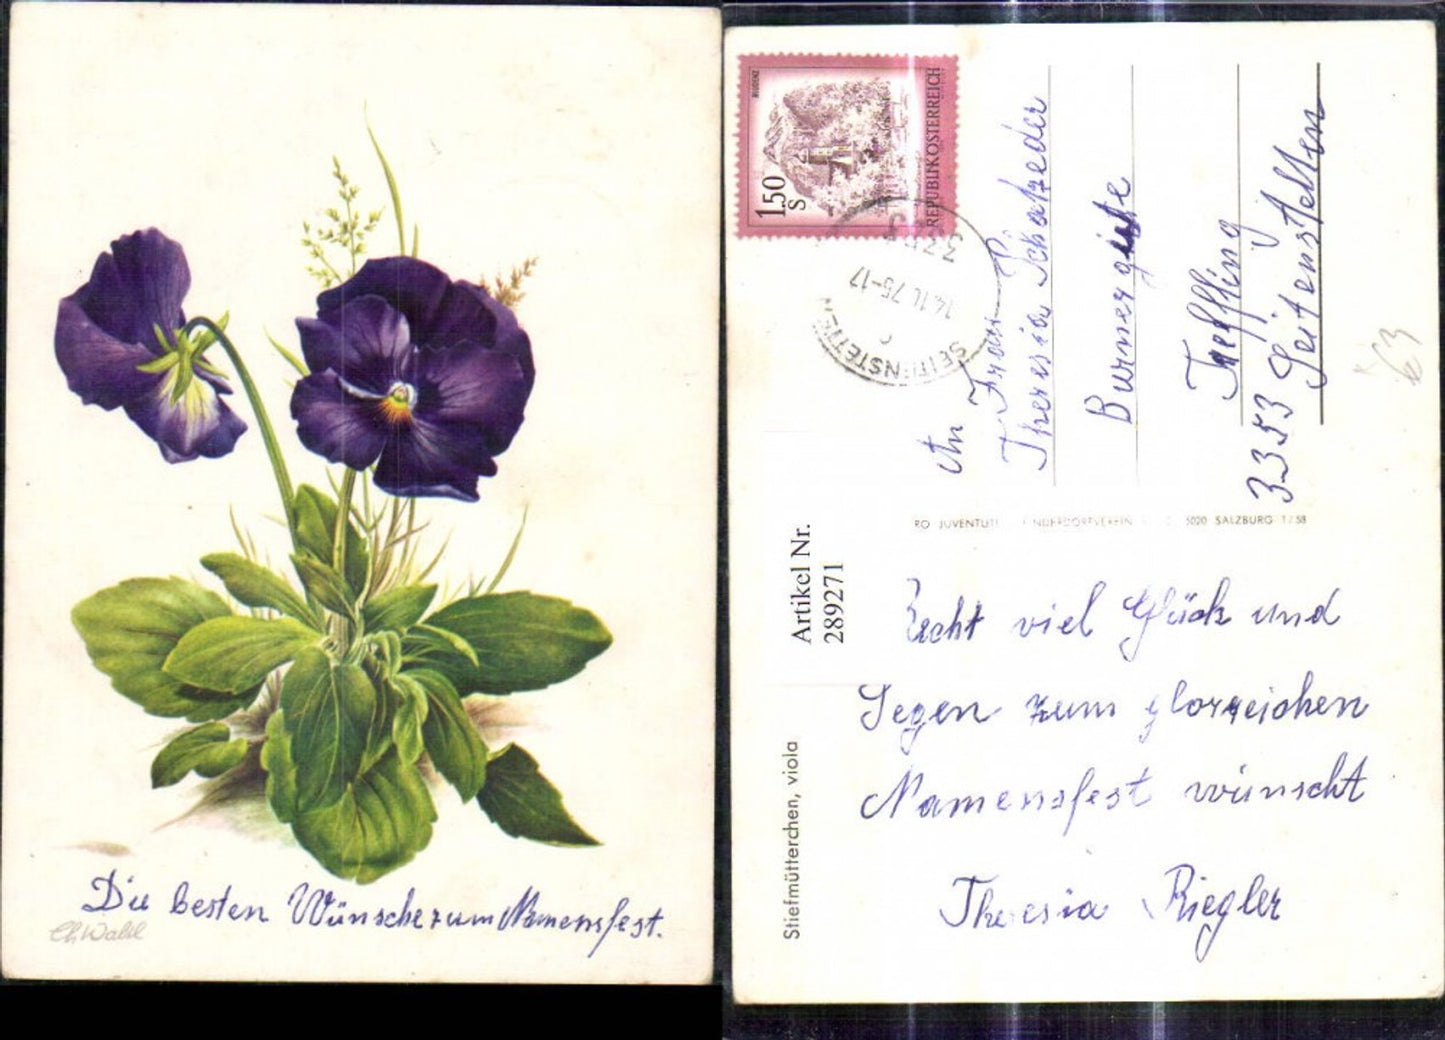 Die besten Wünsche zum Namensfest.
Ch Wahl
BLUDENZ
1.50
S
REPUBLIK ÖSTERREICH
3353
14.11.75-17
c
SEITENSTETTEN
An Frau
Theresia Schatzeder
Treffling
3353 Seitenstetten
€3
RO JUVENTUT KINDERDORFVEREIN 5020 SALZBURG 1/58
Artikel Nr.
289271
Recht viel Glück und
Segen zum glorreichen
Namensfest wünscht
Theresia Riegler
Stiefmütterchen, viola